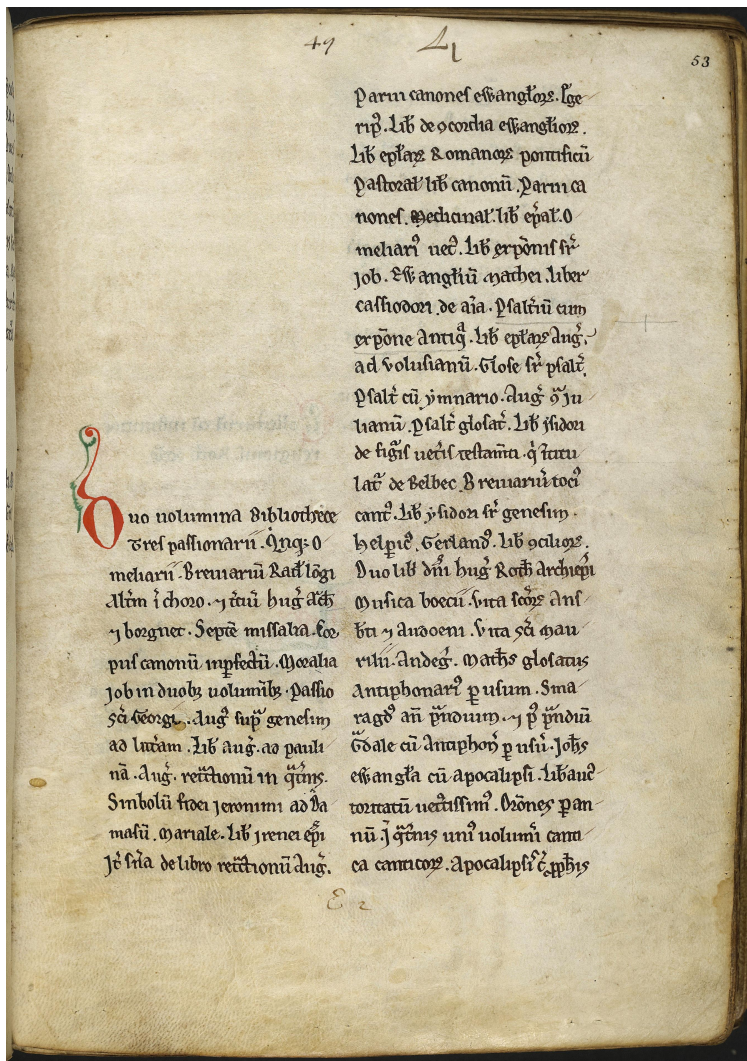 49
53
Duo uolumina Bibliothece
Tres passionarii. Qͥnqꝫ O
meliarii. Breuiariū Rad̄ lōgi
Alt̄m ī choro. ⁊ t̄ciū huḡ acħ
⁊ borguet. Septē missalia. Cor
pus canonū inꝑfectū. Moralia
Job in duobꝫ uoluminibꝫ. Passio
sc̄i Georgii. Auḡ supͣ genesim
ad litt̄am. Lib̄ auḡ. ad pauli
nā. Auḡ. ret̄ctionū in qͣt̄nis.
Simbolū fidei ieronimi ad Da
masū. Mariale. Lib̄ irenei ep̄i
It̄ sn̄ia de libro ret̄ctionū Auḡ.
Parui canones ewangl̄oꝝ.
Lib̄ de ꝯcordia ewangl̄ioꝝ.
Lib̄ epl̄aꝝ Romanoꝝ pontificū
Pastoral̄ lib̄ canonū. Parui ca
nones. Medicinal̄. lib̄ ep̄al̄. O
meliariꝰ uetꝰ. Lib̄ exp̄onis sr̄
Job. Ewangl̄iū Mathei. Liber
cassiodori de aīa. Psalt̄iū cum
exp̄one antiqͣ. Lib̄ epl̄aꝝ Auḡ.
ad volusianū. Glose sr̄ psalt̄.
Psalt̄ cū ymnario. Auḡ ꝯͣ Iu
lianū. Psalt̄ glosat̄. Lib̄ ysidori
de figͥs uet̄is testam̄ti. qͥ ītitu
lat̄ de Belbec. Breuiariū toci
cant̄. Lib̄ ysidori sr̄ genesim.
helpicꝰ. Gerlandꝰ. Lib̄ ꝯcilioꝝ.
Duo lib̄ dn̄i huḡ Roth̄ Archiep̄i
Musica boecii. Vita sc̄oꝝ Ans
b̄ti ⁊ Audoeni. Vita sc̄i Mau
rilii. Andeḡ. Math̄s glosatus
Antiphonariꝰ ꝑ usum. Sma
ragdꝰ an̄ pͣndium. ⁊ pꝰ pͣndiū
Gͣdale cū Antiphonꝰ ꝑ usū. Joh̄s
ewangl̄a cū apocalipsi. Lib̄ auc
toritatū uetustissimꝰ. Or̄ones ꝑ an
nū ī qͣt̄nis uniꝰ uoluminis canti
ca canticoꝝ. Apocalipsis